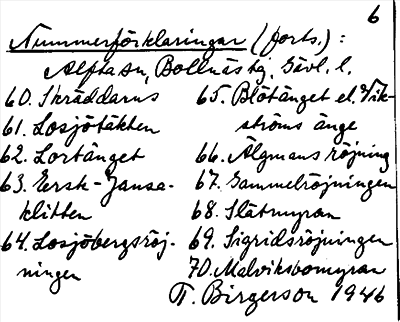 6
Nummerförklaringar (forts.):
Alfta sn, Bollnäs tg, Gävl. l.
60. Skräddarns
61. Losjötäkten
62. Lortänget
63. Ersk-Jansa-
klitten
64. Losjöbergsröj-
ningen
65. Blötänget el. Vik-
ströms änge
66. Älgmans röjning
67. Gammelröjningen
68. Slåtmyran
69. Sigridsröjningen
70. Malviksbomyran
T. Birgerson 1946